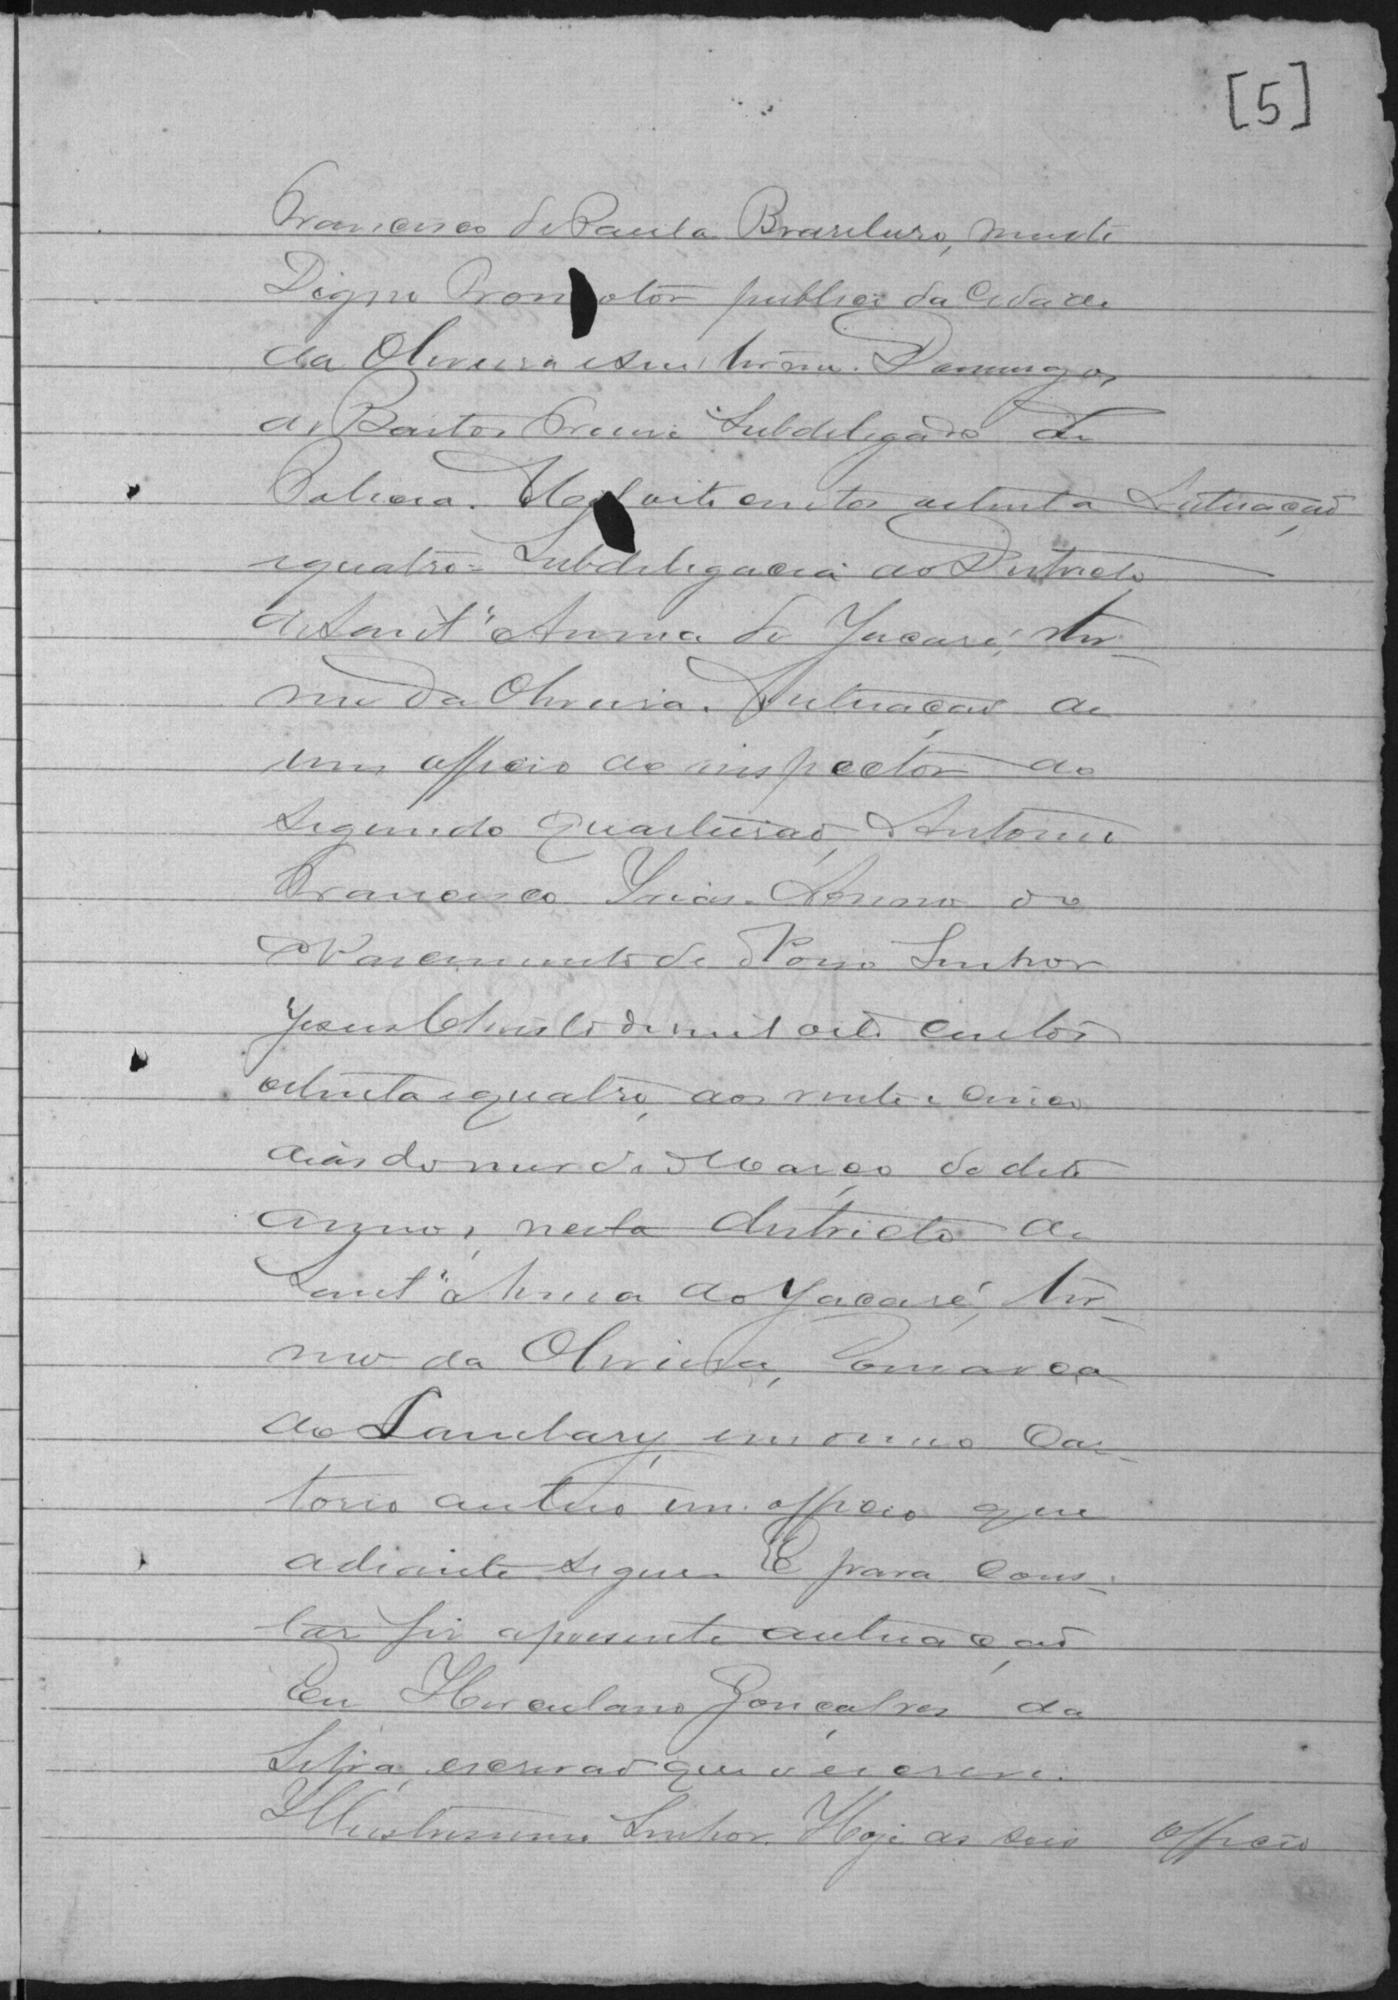 [5]
Francisco de Paula Brasileiro, muito
Digno Promotor publico da Cidade
da Oliveira e seu termo. Domingos
de Bastos Freire Subdelegado de
Policia. Mil oito centos oitenta Autuação
e quatro = Subdelegacia do Districto
de Sant'Anna do Jacaré, ter-
mo da Oliveira. Autuação de
um officio do inspector do
segundo quarteirão, Antonio
Francisco Anno do
Nascimento de Nosso Senhor
Jesus Christo de mil oito centos
oitenta e quatro, aos vinte e cinco
dias do mez de Março do dito
anno, nesta districto de
Sant'Anna do Jacaré, ter-
mo da Oliveira, Comarca
do Lambary, em meo Car-
torio autuo um officio que
adiante segue. E para cons-
tar fiz apresente autuação
Eu Herculano Gonçalves da
Silva, escrivão que o escrevi.
Illustrissimo Senhor. Hoje as seis Officio